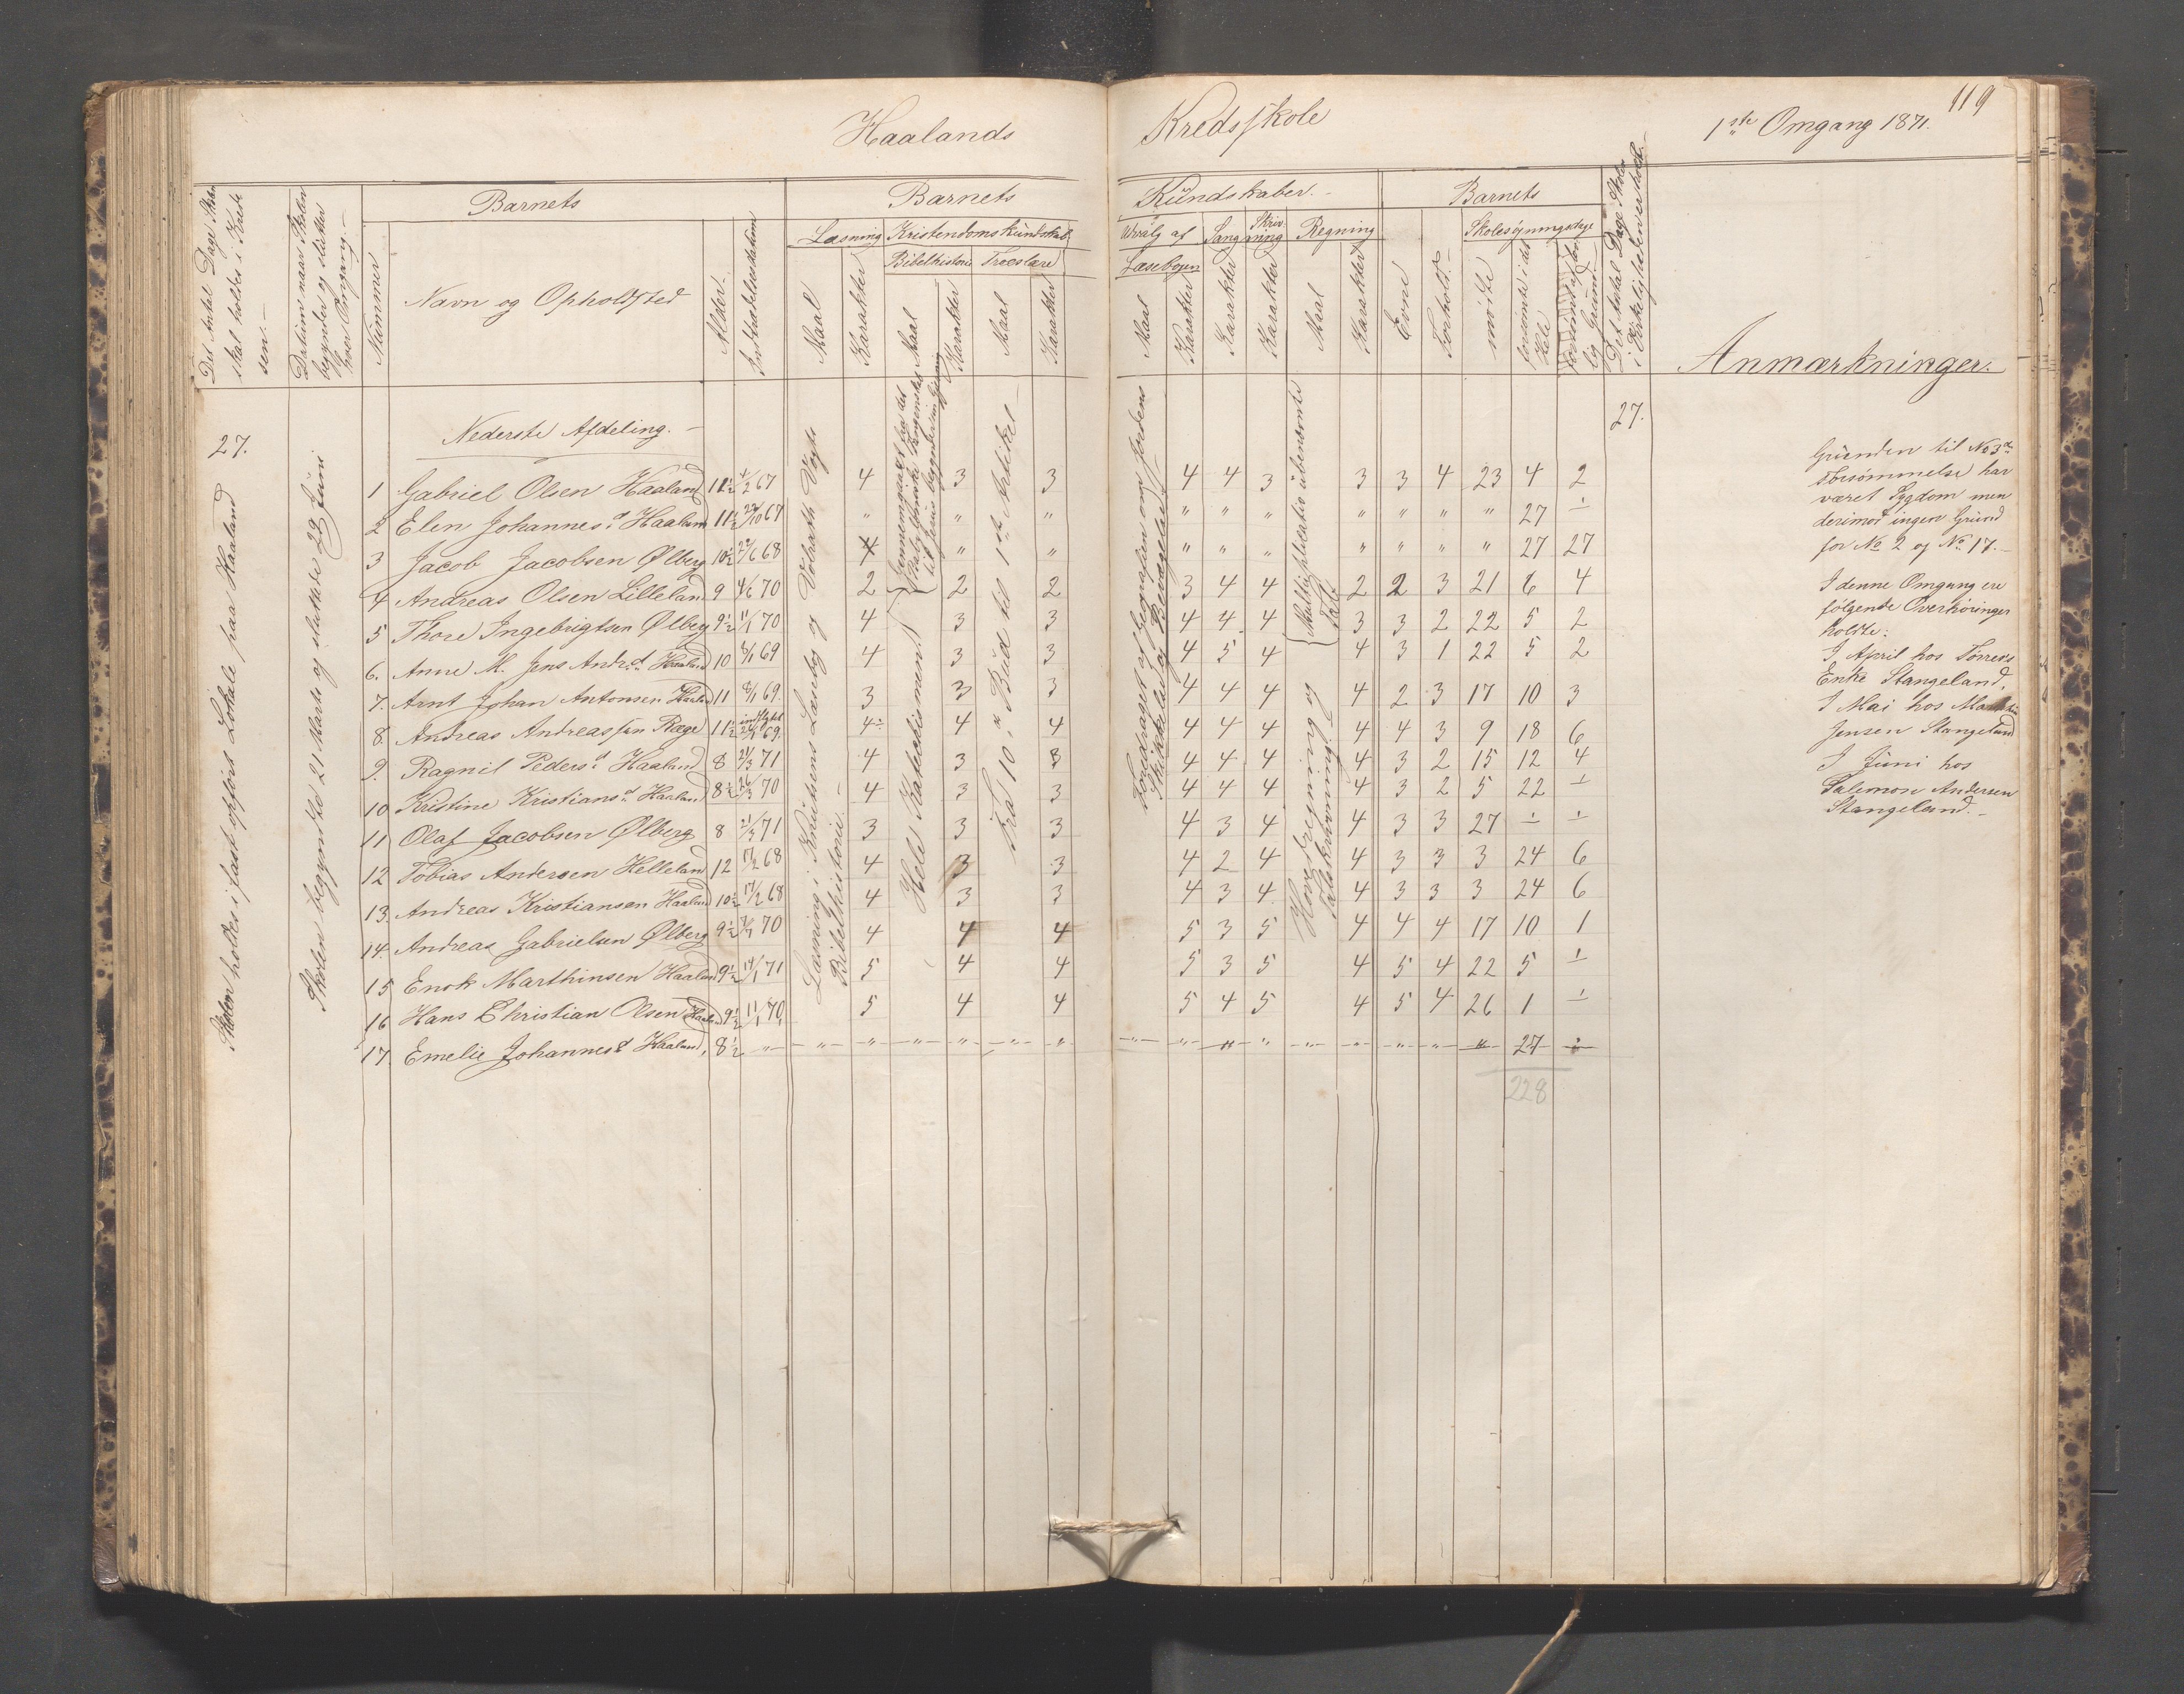 119
Haalands Kredsskole 1ste Omgang 1871.
Det Antal Dage Skolen skal holdes i Kredsen.
Datum naar Skolen begynder og slutter hver Omgang.
Barnets
Nummer
Navn og Opholdsted
Alder.
Indtrædelsesdatum
Barnets Kundskaber.
Læsning
Maal
Karakter
Kristendomskundskab
Bibelhistorie
Maal
Karakter
Troeslære
Maal
Karakter
Udvalg af Læsebogen
Maal
Karakter
Sang
Karakter
Skrivning
Karakter
Regning
Maal
Karakter
Barnets
Evne
Forhold.
Skolesøgningsdage
mødte
forsømte i det Hele
forsømte af lovlig Grund.
Det Antal Dage Skolen i Virkeligheden er holdt.
Anmærkninger.
27.
Skolen holdes i fast opført Lokale paa Haaland
Skolen begyndte 21 Marts og sluttede 29 Juni
Nederste Afdeling.
27.
Læsning i Knutsens Læsebog og Volrath Vogts Bibelhistorie.
Hele Katekismen
Fra 10de Bud til 1ste Artikel
Hovedregning og Talskrivning.
1 Gabriel Olsen Haaland 11½ ½ 67 4 3 3 4 4 3 3 3 4 23 4 2
2 Elen Johannesd Haaland 11½ 67 " " " " " " " " " " 27 ÷
3 Jacob Jacobsen Ølberg 10½ 22/6 68 " " " " " " " " " 27 27
4 Andreas Olsen Lilleland 9 4/6 70 2 2 2 3 4 4 2 2 3 21 6 4
5 Thore Ingebrigtsen Ølberg 9½ 11/1 70 4 3 3 4 4 4 3 3 2 22 5 2
6. Anne M. Jens Andrd Haaland 10 8/1 69 4 3 3 4 5 4 4 3 1 22 5 2
7. Arnt Johan Antonsen Haaland 11 8/1 69. 3 3 3 4 4 4 4 2 3 17 10 3
8. Andreas Andreassen Ræge 11½ indflyttet 69. 4÷ 4 4 4 4 4 4 4 3 9 18 6
9. Ragnil Pedersd Haaland 8 21/3 71 4 3 3 4 4 4 4 3 2 15 12 4
10 Kristine Kristiansd Haaland 8½ 26/3 70 4 3 3 4 4 4 4 3 2 5 22 ÷
11 Olaf Jacobsen Ølberg 8 21/3 71 3 3 3 4 3 4 4 3 3 27 ÷ ÷
12 Tobias Andersen Helleland 12 17/2 68 4 3 3 4 2 4 4 3 3 3 24 6
13. Andreas Kristiansen Haaland 10½ 17/2 68 4 3 3 4 3 4 4 3 3 3 24 6
14. Andreas Gabrielsen Ølberg 9½ 70 4 4 4 5 3 5 4 4 4 17 10 1
15 Enok Marthinsen Haaland 9½ 14/1 71 5 4 4 5 3 5 4 5 4 22 5 ÷
16 Hans Christian Olsen Haaland 9½ 11/1 70 5 4 4 5 4 5 4 5 4 26 1 ÷
17. Emelie Johannesd Haaland, 8½ " " " " " " " " " " " " " " " " 27 ÷
228
Grunden til No 3s
Forsømmelse har
været Sygdom men
derimod ingen Grund
for No 2 og No 17.
I denne Omgang ere
følgende Overhøringer
holdte:
I April hos Tørres's
Enke Stangeland,
I Mai hos
Jensen Stangeland
I Juni hos
Salemon Andersen
Stangeland.